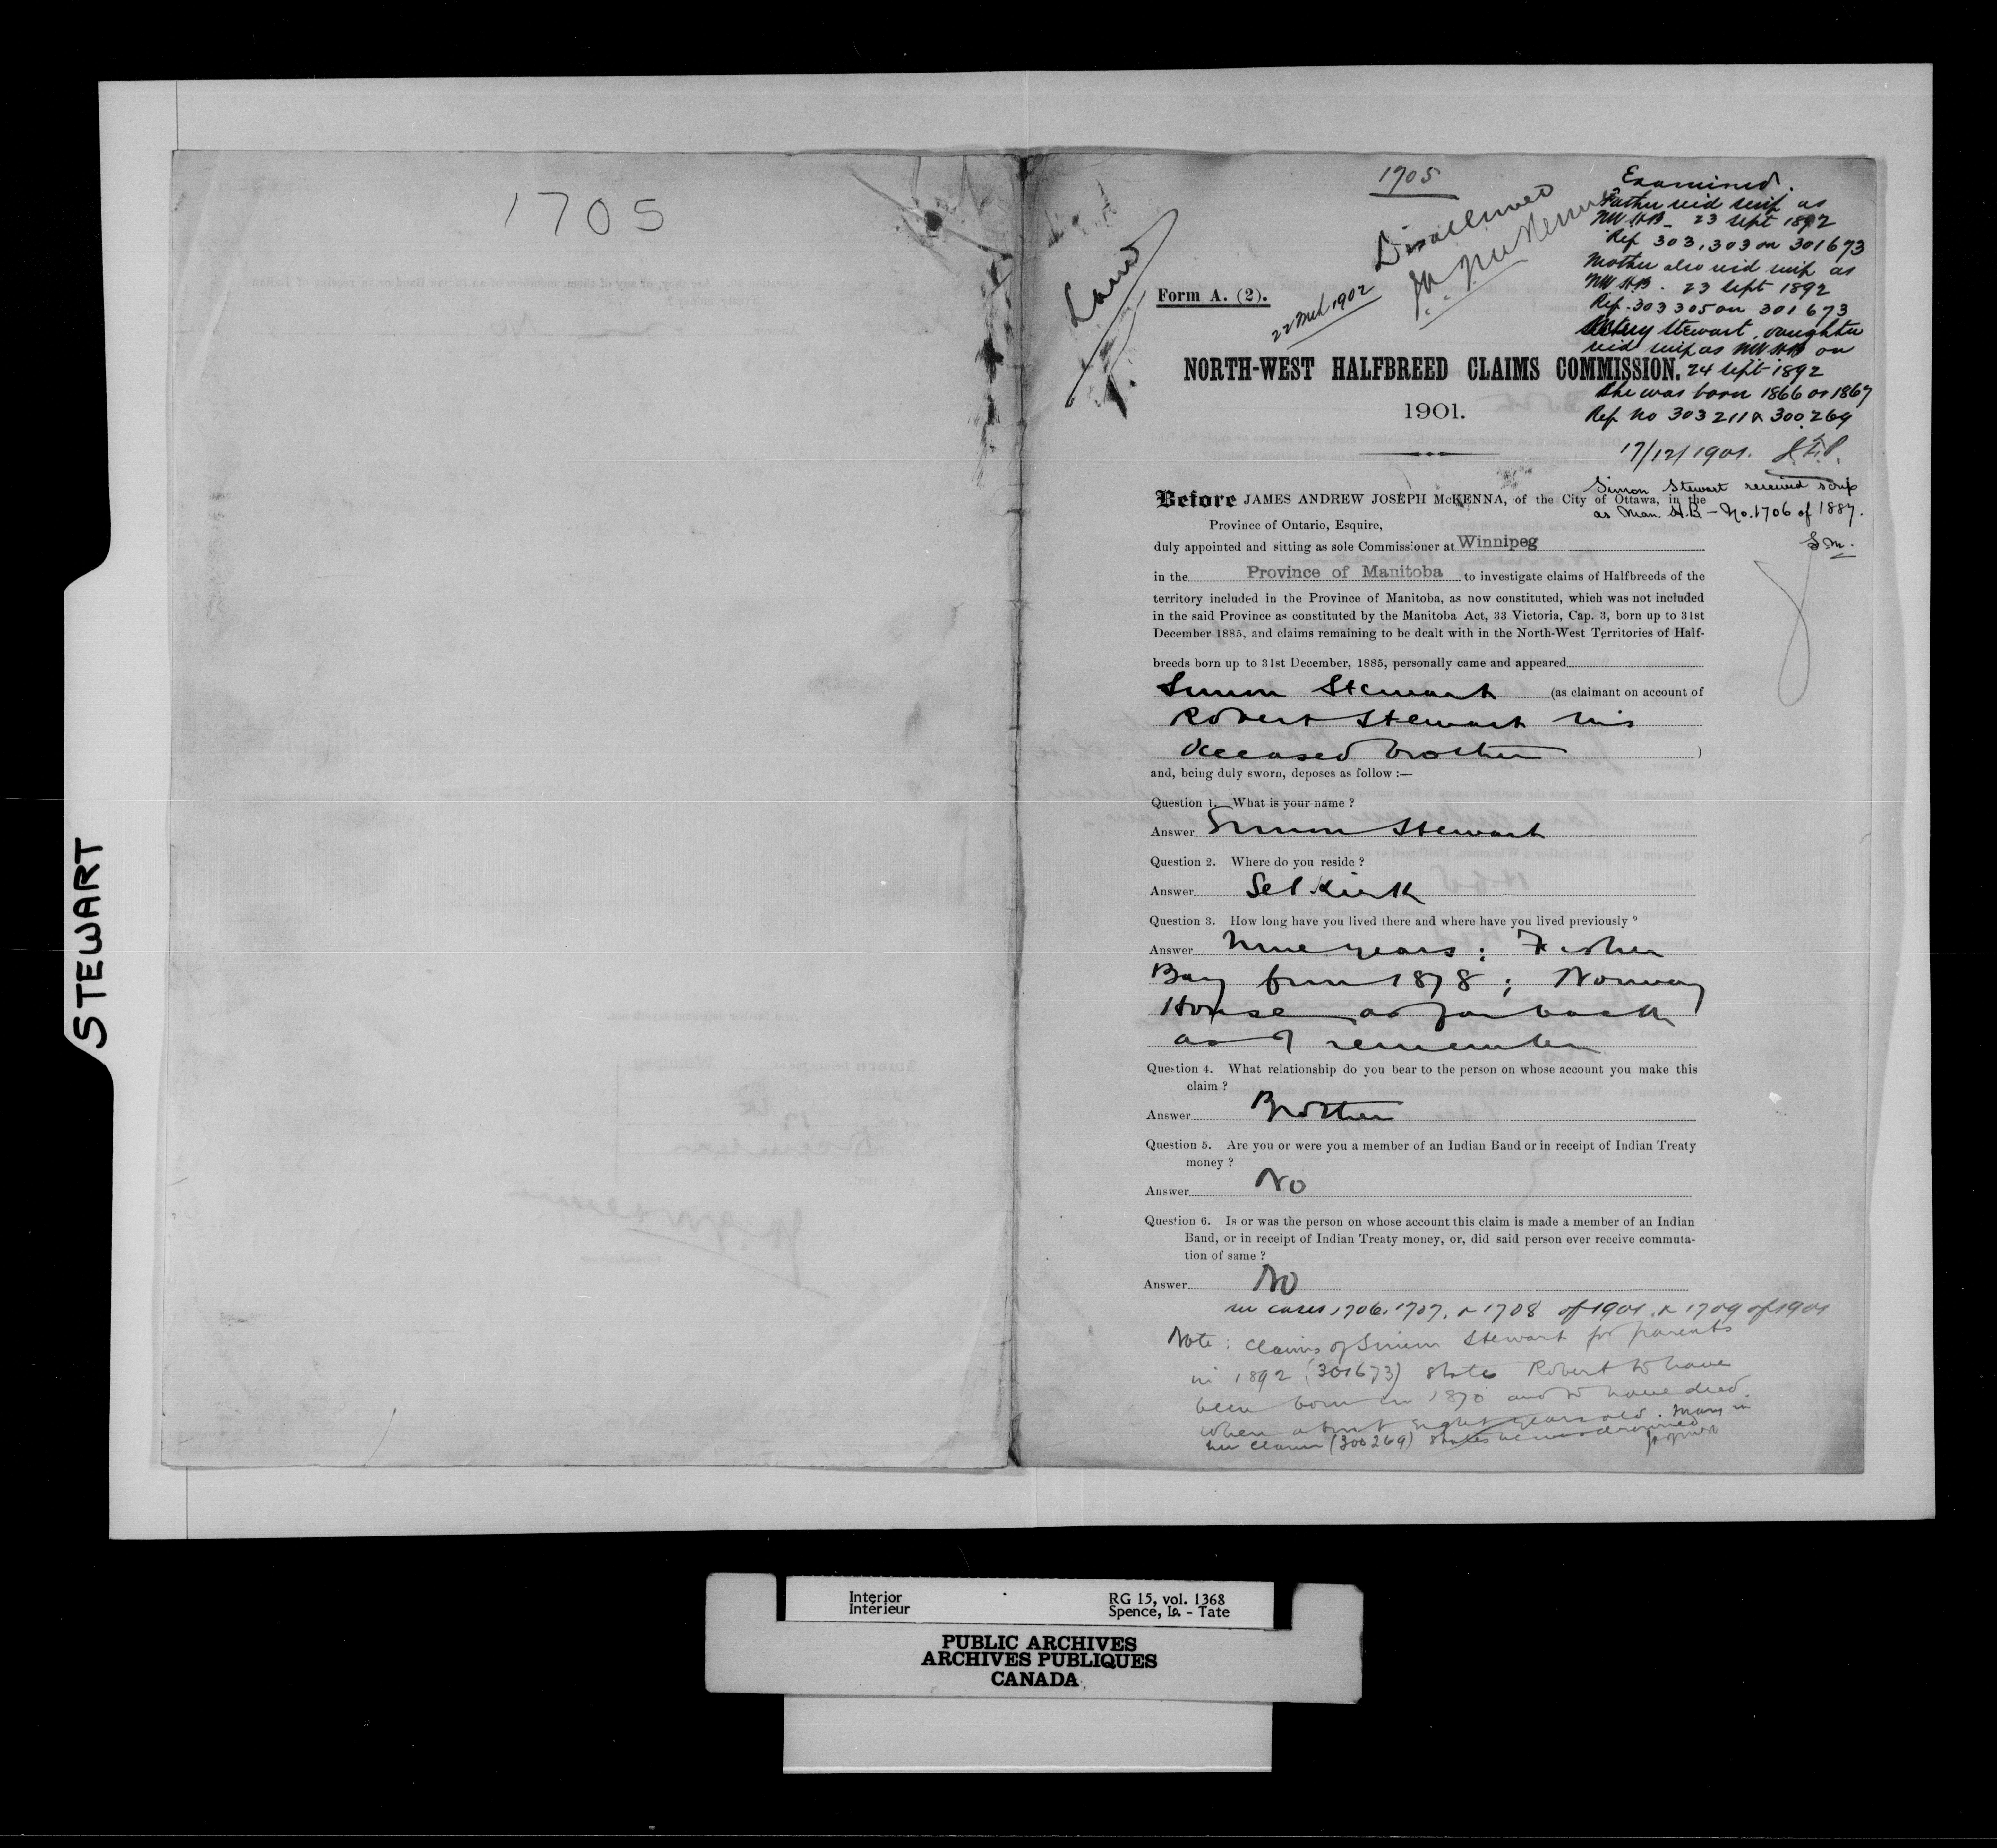 STEWART
1705
1705
Land
Disallowed
J.A.J. McKenna
22 Mch 1902
Examined.
Father recd scrip as
NW H.B. 23 Sept 1892
Ref 303,303 on 301673
Mother also recd scrip as
NW H.B. 23 Sept 1892
Ref. 303305 on 301673
Mary Stewart, daughter
recd scrip as NW H.B on
24 Sept 1892
She was born 1866 or 1867
Ref No 303211 & 300.269
17/12/1901.
Simon Stewart received scrip
as Man. H.B. - No. 1706 of 1887.
Form A. (2).
NORTH-WEST HALFBREED CLAIMS COMMISSION.
1901.
Before JAMES ANDREW JOSEPH McKENNA, of the City of Ottawa, in the
Province of Ontario, Esquire,
duly appointed and sitting as sole Commissioner at Winnipeg
in the Province of Manitoba to investigate claims of Halfbreeds of the
territory included in the Province of Manitoba, as now constituted, which was not included
in the said Province as constituted by the Manitoba Act, 33 Victoria, Cap. 3, born up to 31st
December 1885, and claims remaining to be dealt with in the North-West Territories of Half-
breeds born up to 31st December, 1885, personally came and appeared
Simon Stewart (as claimant on account of
Robert Stewart his
deceased brother )
and, being duly sworn, deposes as follow :—
Question 1. What is your name ?
Answer Simon Stewart
Question 2. Where do you reside ?
Answer Selkirk
Question 3. How long have you lived there and where have you lived previously ?
Answer Nine years ; Fisher
Bay from 1878 ; Norway
House as far back
as I remember
Question 4. What relationship do you bear to the person on whose account you make this
claim ?
Answer Brother
Question 5. Are you or were you a member of an Indian Band or in receipt of Indian Treaty
money ?
Answer No
Question 6. Is or was the person on whose account this claim is made a member of an Indian
Band, or in receipt of Indian Treaty money, or, did said person ever receive commuta-
tion of same ?
Answer No
see cases 1706, 1707, & 1708 of 1901 & 1709 of 1901
Note : Claims of Simon Stewart for parents
in 1892 (301673) states Robert to have
been born in 1870 and to have died
when about eight years old. Mary in
her claim (300269) states he was drowned
Interior
Intérieur
RG 15, vol. 1368
Spence, Lo. - Tate
PUBLIC ARCHIVES
ARCHIVES PUBLIQUES
CANADA